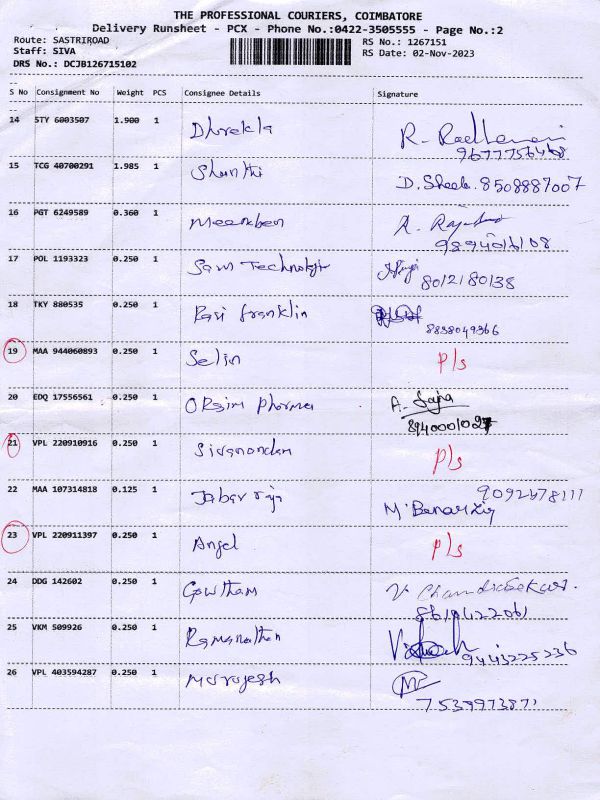 THE PROFESSIONAL COURIERS, COIMBATORE
Delivery Runsheet - PCX - Phone No.:0422-3505555 - Page No.:2
Route: SASTRIROAD RS No.: 1267151
Staff: SIVA RS Date: 02-Nov-2023
DRS No.: DCJB126715102
S No Consignment No Weight PCS Consignee Details Signature
14 STY 6003507 1.900 1 R. Radhamani
9677756468
15 TCG 40700291 1.985 1 Shanthi D. Sheela. 8508887007
16 PGT 6249589 0.360 1 Meenkben
9894016108
17 POL 1193323 0.250 1 Sam Technology 8012180138
18 TKY 880535 0.250 1 Ravi franklin
8838049366
19 MAA 944060893 0.250 1 Selin P/s
20 EDQ 17556561 0.250 1 Pharma A. Sajna
8940001027
21 VPL 220910916 0.250 1 Sivanandam P/s
22 MAA 107314818 0.125 1 Jabar raja 9092678111
23 VPL 220911397 0.250 1 Angel P/s
24 DDG 142602 0.250 1 Gowtham V. Chandrasekar.
8610422061
25 VKM 509926 0.250 1 Ramanathan
9443225236
26 VPL 403594287 0.250 1
7539973871